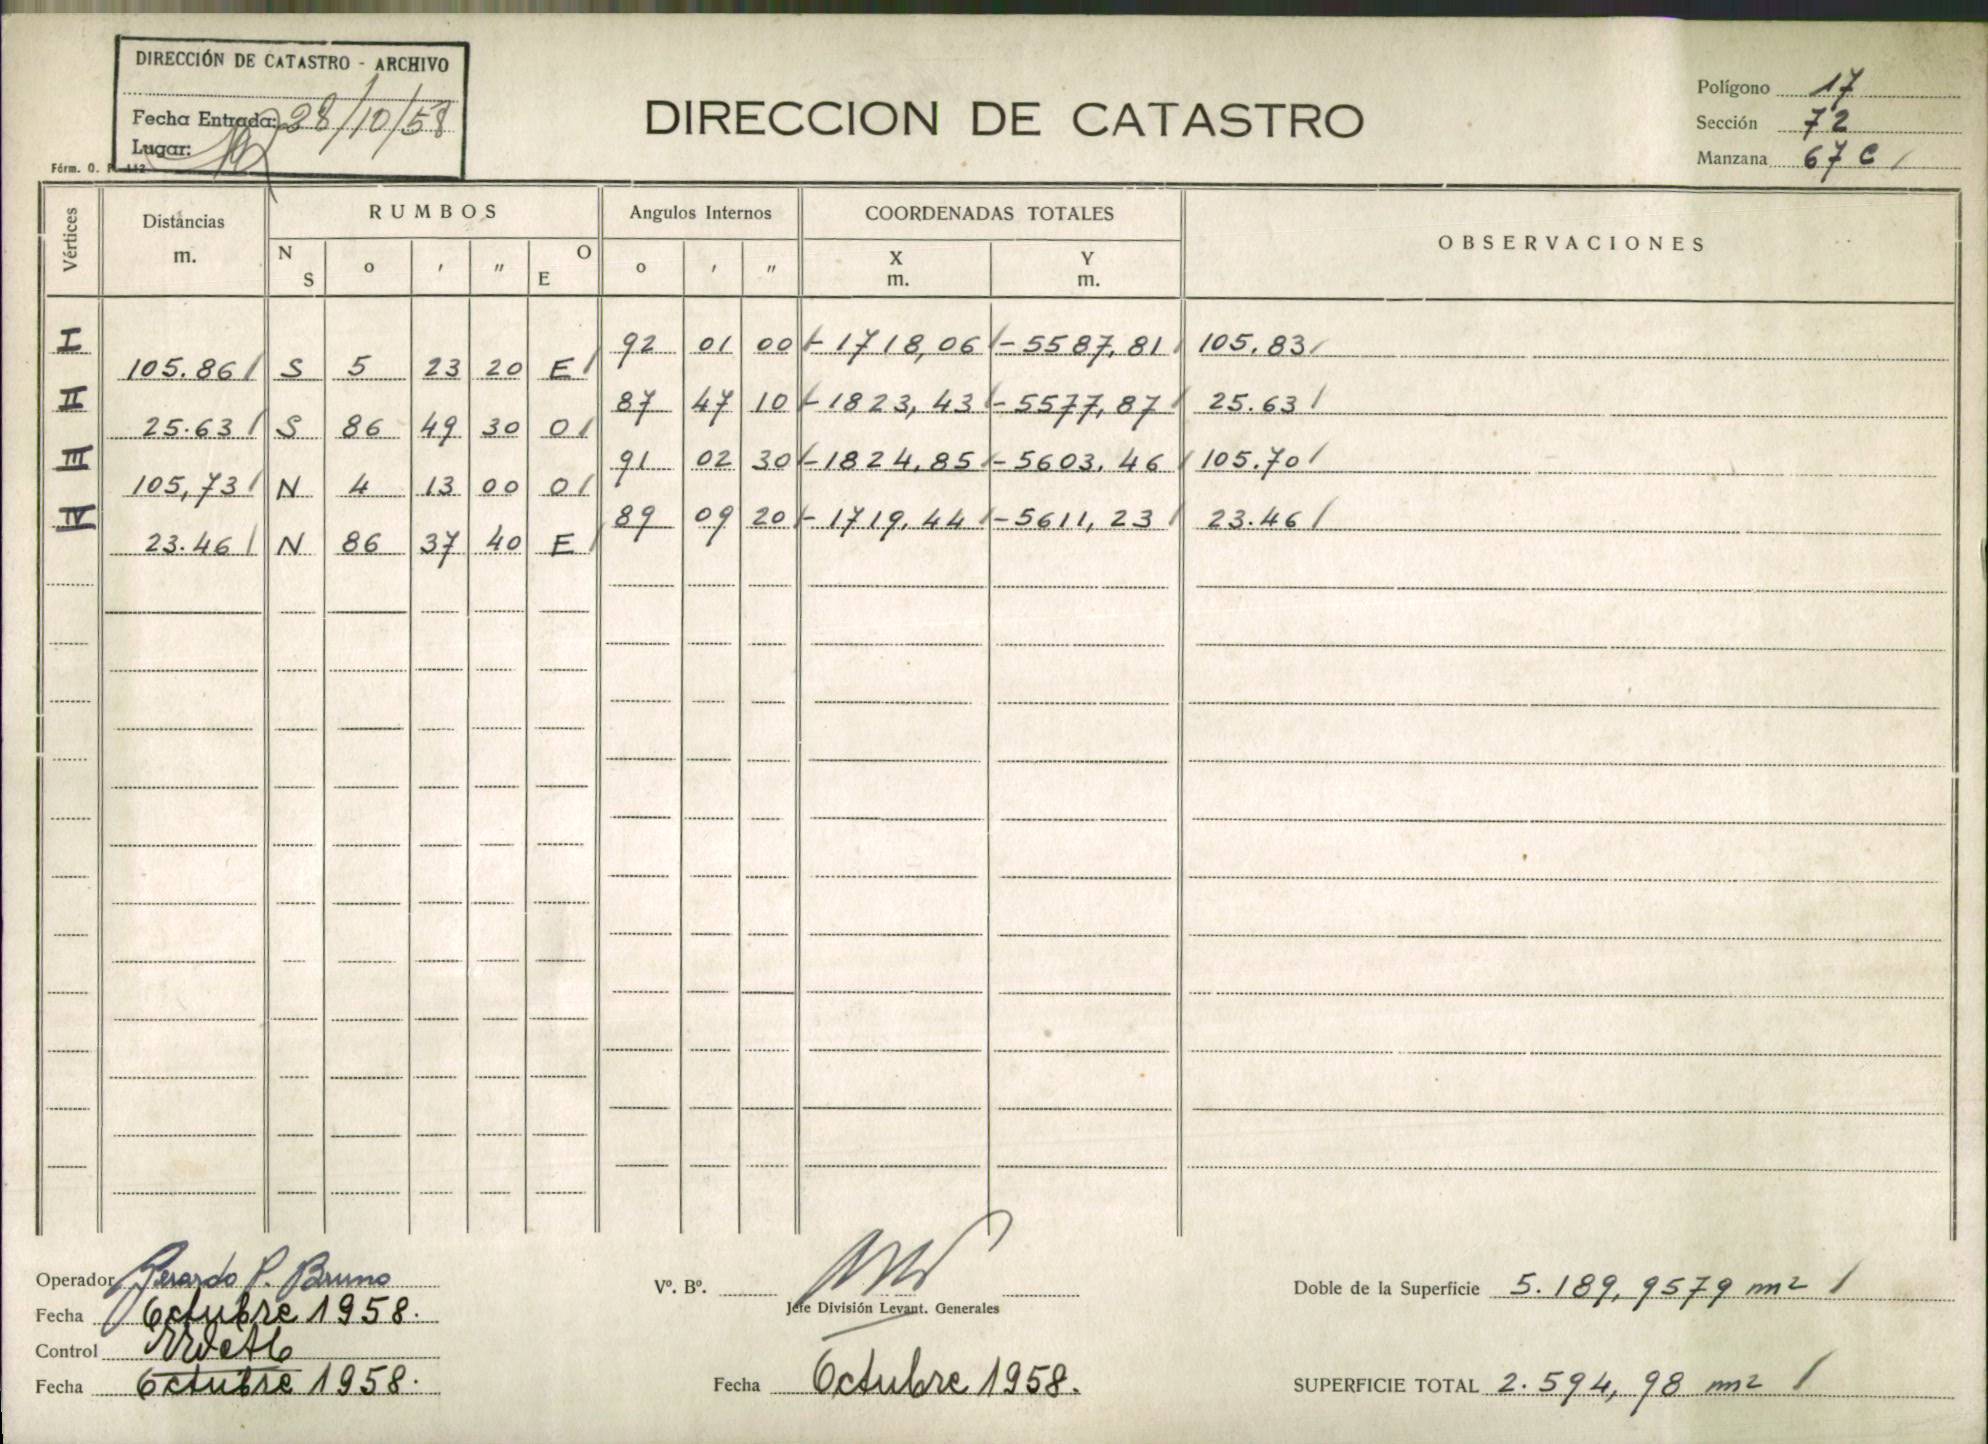 DIRECCIÓN DE CATASTRO - ARCHIVO
Fecha Entrada: 28/10/58
Lugar:
Fórm. O. P. 112
DIRECCION DE CATASTRO
Polígono 17
Sección 72
Manzana 67 C /
Vértices Distáncias m. RUMBOS Angulos Internos COORDENADAS TOTALES OBSERVACIONES
N S o , " O E o , " X m. Y m.
I 92 01 00 - 1718,06 / - 5587,81 / 105.83 /
105.86 / S 5 23 20 E /
II 87 47 10 - 1823,43 / - 5577,87 / 25.63 /
25.63 / S 86 49 30 O /
III 91 02 30 - 1824,85 / - 5603,46 / 105.70 /
105,73 / N 4 13 00 O /
IV 89 09 20 - 1719,44 / - 5611,23 / 23.46 /
23.46 / N 86 37 40 E /
Operador Gerardo P. Bruno
Fecha Octubre 1958.
Control
Fecha Octubre 1958.
Vº. Bº.
Jefe División Levant. Generales
Fecha Octubre 1958.
Doble de la Superficie 5.189,9579 m2 /
SUPERFICIE TOTAL 2.594,98 m2 /